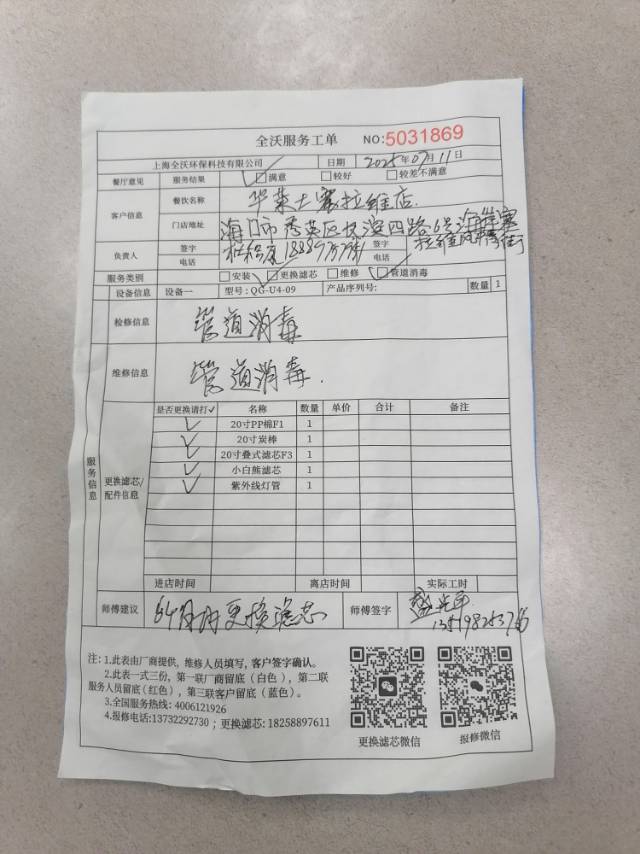 全沃服务工单 NO:5031869
上海全沃环保科技有限公司 日期 2025年07月11日
餐厅意见 服务结果 ☑满意 □较好 □较差不满意
客户信息 餐饮名称 华莱士塞拉维店
门店地址 海口市秀英区滨四路6号海
负责人 签字 签字
电话 电话
服务类别 □安装 ☑更换滤芯 □维修 ☑管道消毒
设备信息 设备一 型号:QG-U4-09 产品序列号: 数量 1
检修信息 管道消毒
维修信息 管道消毒.
服务信息
更换滤芯/配件信息
是否更换请打✓ 名称 数量 单价 合计 备注
✓ 20寸PP棉F1 1
✓ 20寸炭棒 1
✓ 20寸叠式滤芯F3 1
✓ 小白熊滤芯 1
✓ 紫外线灯管 1
进店时间 离店时间 实际工时
师傅建议 6个月内更换滤芯 师傅签字
注:1.此表由厂商提供,维修人员填写,客户签字确认。
2.此表一式三份,第一联厂商留底(白色),第二联
服务人员留底(红色),第三联客户留底(蓝色)。
3.全国服务热线:4006121926
4.报修电话:13732292730;更换滤芯:18258897611
更换滤芯微信 报修微信